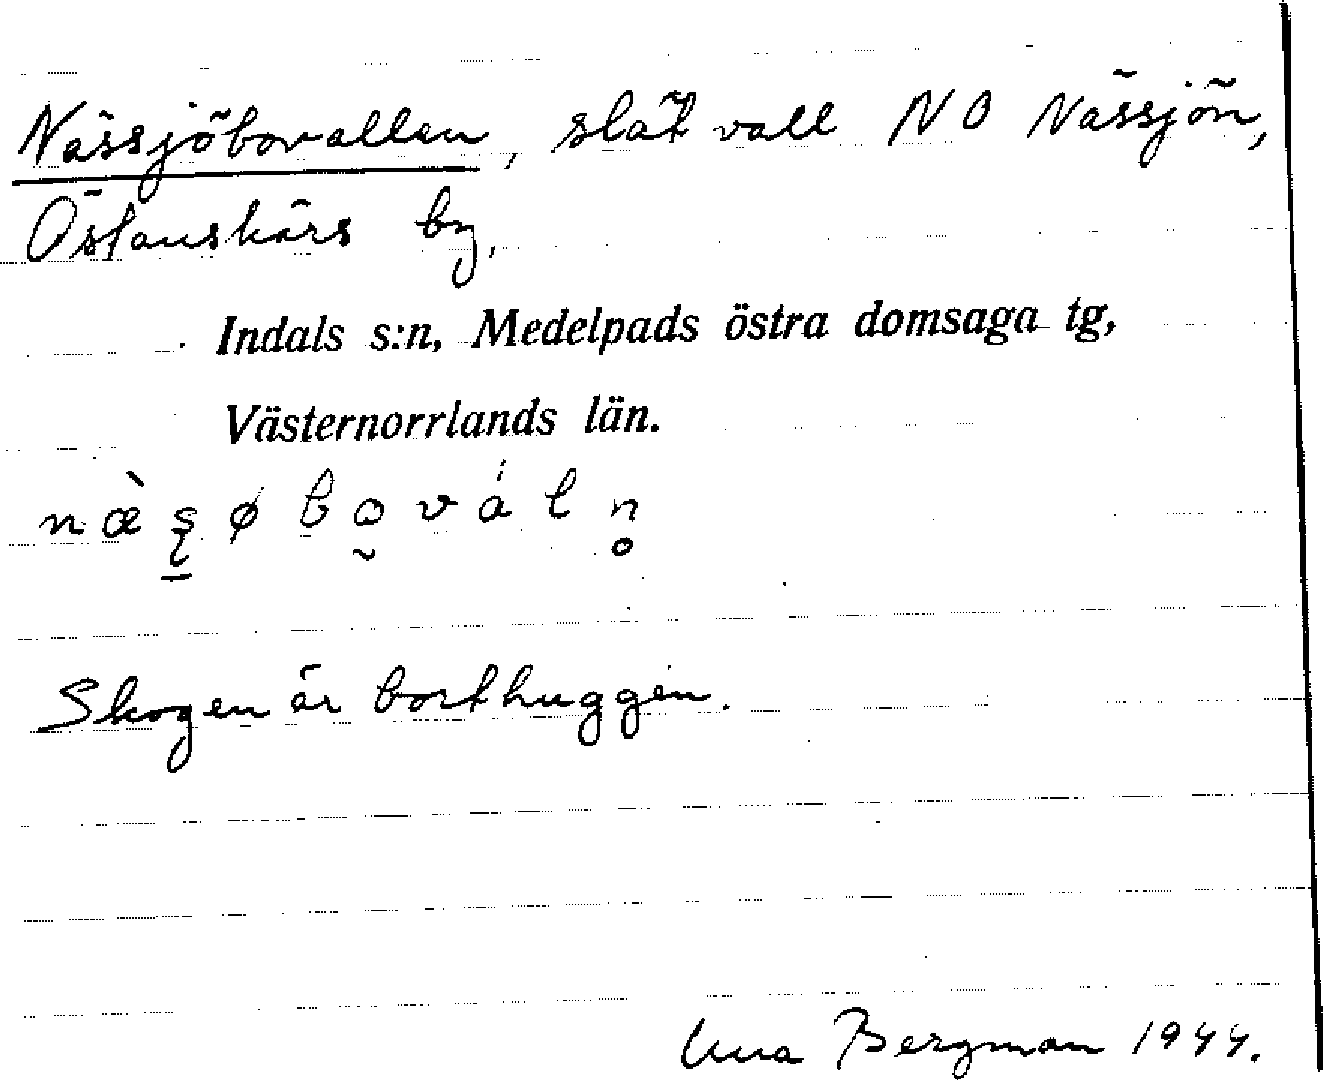 Nässjöbovallen, slät vall NO Nässjön,
Östanskärs by,
Indals s:n, Medelpads östra domsaga tg,
Västernorrlands län.
Skogen är borthuggen.
Bergman 1944.